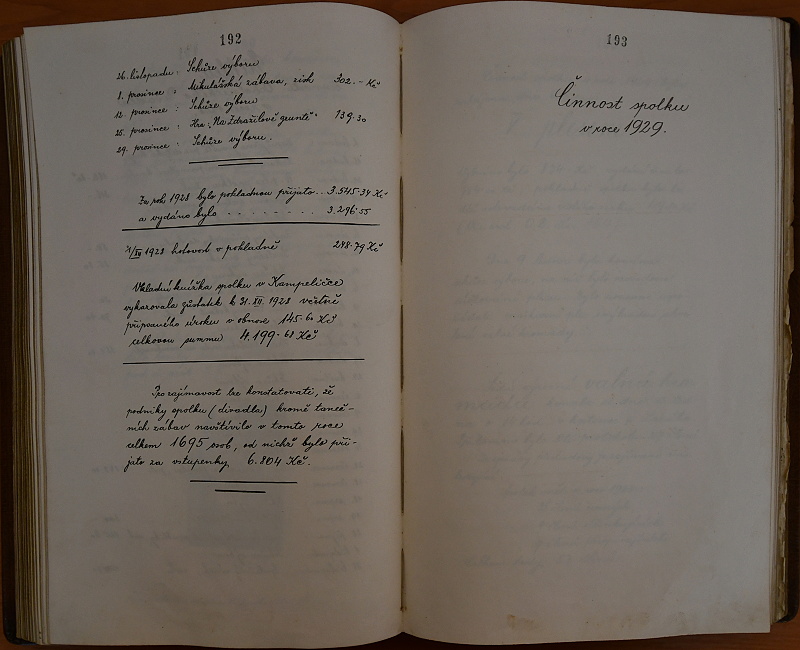 192
26. listopadu : Schůze výboru
8. prosince : Mikulášská zábava, zisk 302.- Kč
12. prosince : Schůze výboru
25. prosince : Hra „Na Zdražilově gruntě" 139.30
29. prosince : Schůze výboru.
Za rok 1928 bylo pokladnou přijato .. 3.545.34 Kč
a vydáno bylo - - - - - - - - 3.296.55
31/XII 1928 hotovost v pokladně 248.79 Kč
Vkladní knížka spolku v Kampeličce
vykazovala zůstatek k 31. XII. 1928 včetně
připsaného úroku v obnose 145.60 Kč
celkovou summu 4.199.68 Kč
Pro zajímavost lze konstatovati, že
podniky spolku (divadla) kromě taneč-
ních zábav navštívilo v tomto roce
celkem 1695 osob, od nichž bylo při-
jato za vstupenky 6.804 Kč.
193
Činnost spolku
v roce 1929.